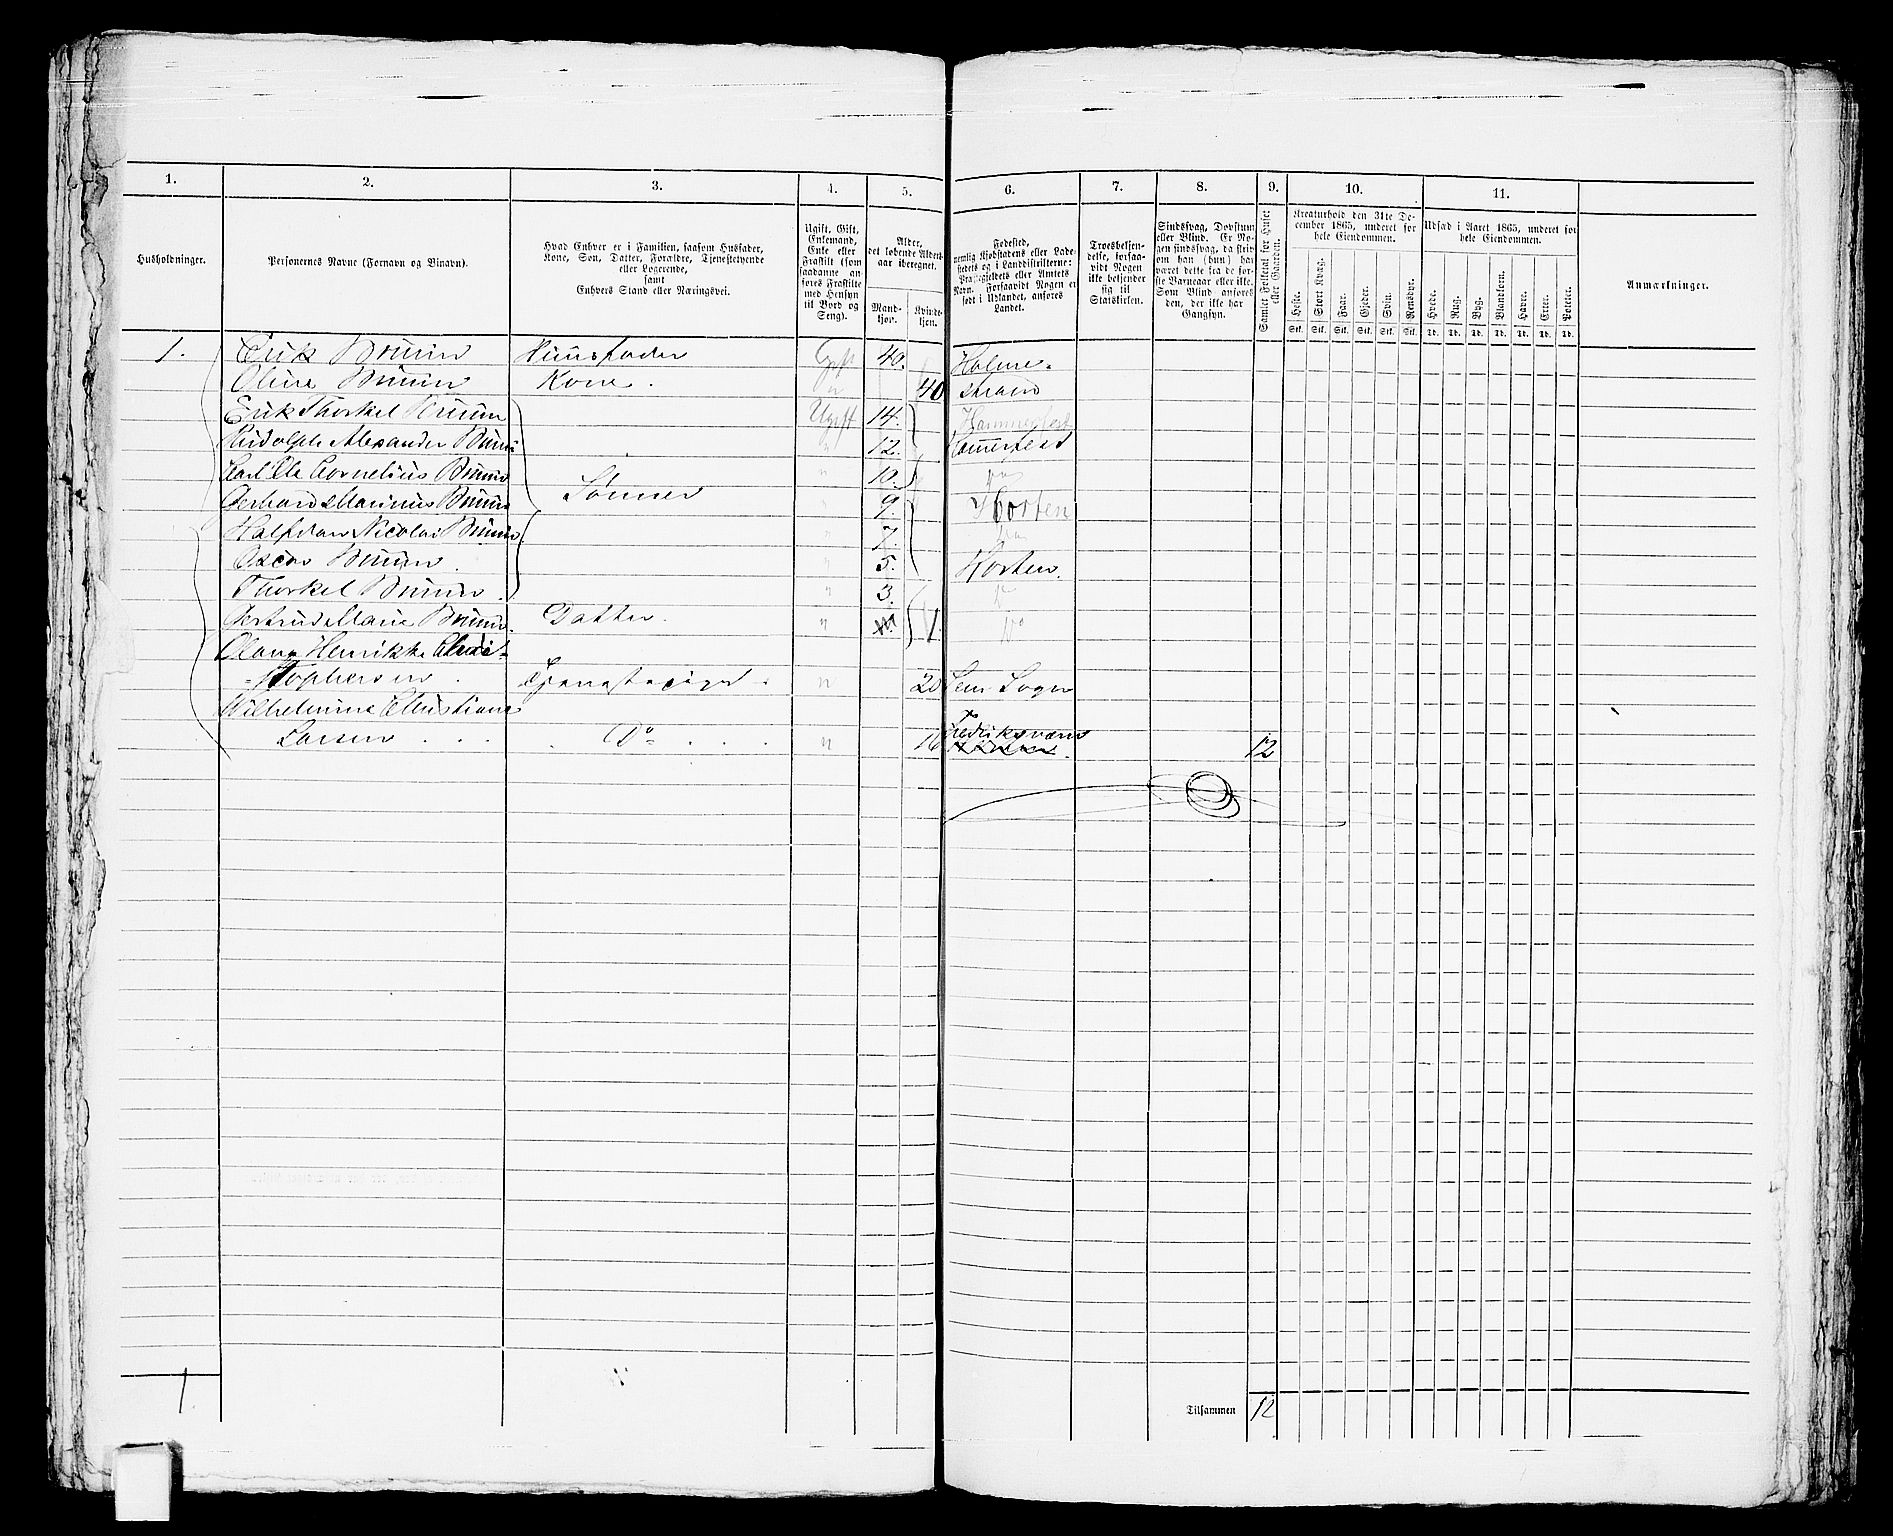 1. 2. 3. 4. 5. 6. 7. 8. 9. 10. 11.
Husholdninger.
Personernes Navne (Fornavn og Binavn).
Hvad Enhver er i Familien, saasom Husfader,
Kone, Søn, Datter, Forældre, Tjenestetyende
eller Logerende,
samt
Enhvers Stand eller Næringsvei.
Ugift, Gift,
Enkemand,
Enke eller
Fraskilt (som
saadanne an-
føres Fraskilte
med Hensyn
til Bord og
Seng).
Alder,
det løbende Alders-
aar iberegnet.
Mand-
kjøn.
Kvinde-
kjøn.
Fødested,
nemlig Kjøbstadens eller Lade-
stedets og i Landdistrikterne:
Præstegjeldets eller Amtets
Navn. Forsaavidt Nogen er
født i Udlandet, anføres
Landet.
Troesbekjen-
delse, forsaa-
vidt Nogen
ikke bekjender
sig til
Statskirken.
Sindssvag, Døvstum
eller Blind. Er No-
gen sindssvag, da skriv
om han (hun) har
været dette fra de før-
ste Barneaar eller ikke.
Som Blind ansøres
den, der ikke har
Gangsyn.
Samlet Folketal for Huset
eller Gaarden.
Kreaturhold den 31te De-
cember 1865, underet for
hele Eiendommen.
Heste. Stort Kvæg. Faar. Gjeder. Svin. Rensdyr.
Stk. Stk. Stk. Stk. Stk. Stk.
Udsæd i Aaret 1865, underet for
hele Eiendommen.
Hvede. Rug. Byg. Blandkorn. Havre. Erter. Poteter.
Td. Td. Td. Td. Td. Td. Td.
Anmærkninger.
1. Erik Bruun Huusfader Gift 40. Holme-
Oline Bruun Kone. " 40 strand
Erik Thorkel Bruun Ugift 14. Hammerfest
Rudolph Alexander Bruun " 12. Hamerfest
Carl Ole Cornelius Bruun " 10.
Gerhard Marinius Bruun Sønner " 9. Horten
Halfdan Nicolai Bruun " 7.
Oscar Bruun. " 5. Horten.
Thorkel Bruun. " 3.
Gertrud Marie Bruun. Datter. " 1. Do
Olava Henrikke Christ-
-tophersen. Tjenestepige. " 20 Sem Sogn
Wilhelmine Christiane
Larsen . . . . Do . . . " 16 Fredriksværn 12
1
Tilsammen 12